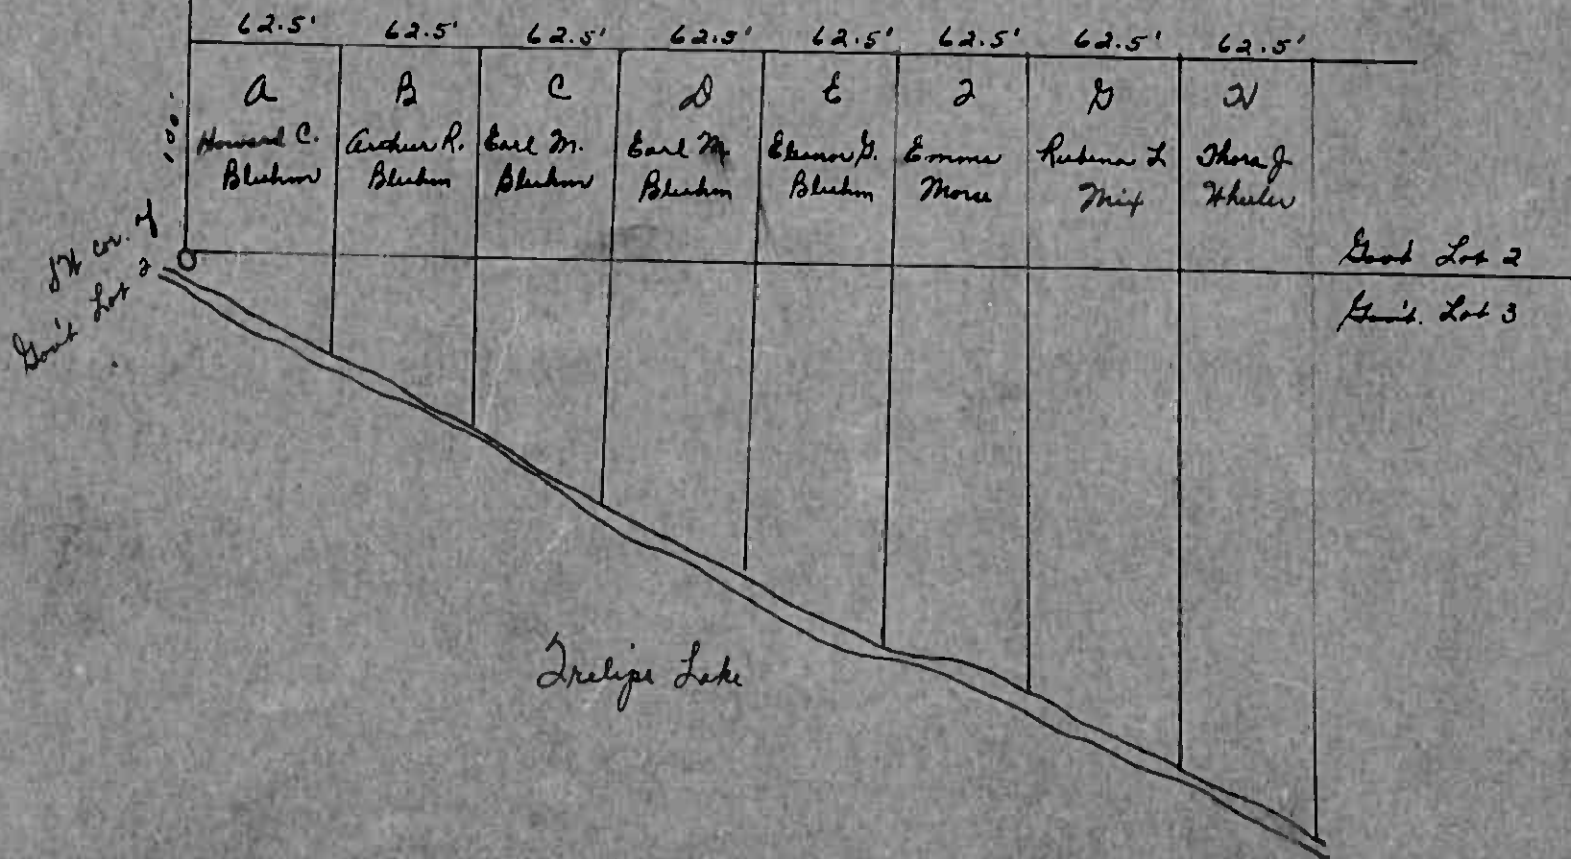 62.5' 62.5' 62.5' 62.5' 62.5' 62.5' 62.5' 62.5'
A
Howard C.
Bluhm
B
Arthur R.
Bluhm
C
Earl M.
Bluhm
D
Earl M.
Bluhm
E
Eleanor G.
Bluhm
F
Emma
Morse
G
Rubena L
Mix
H
Thora J
Wheeler
100'
SW cor. of
Gov't Lot 2
Govt Lot 2
Gov't. Lot 3
Trelipe Lake